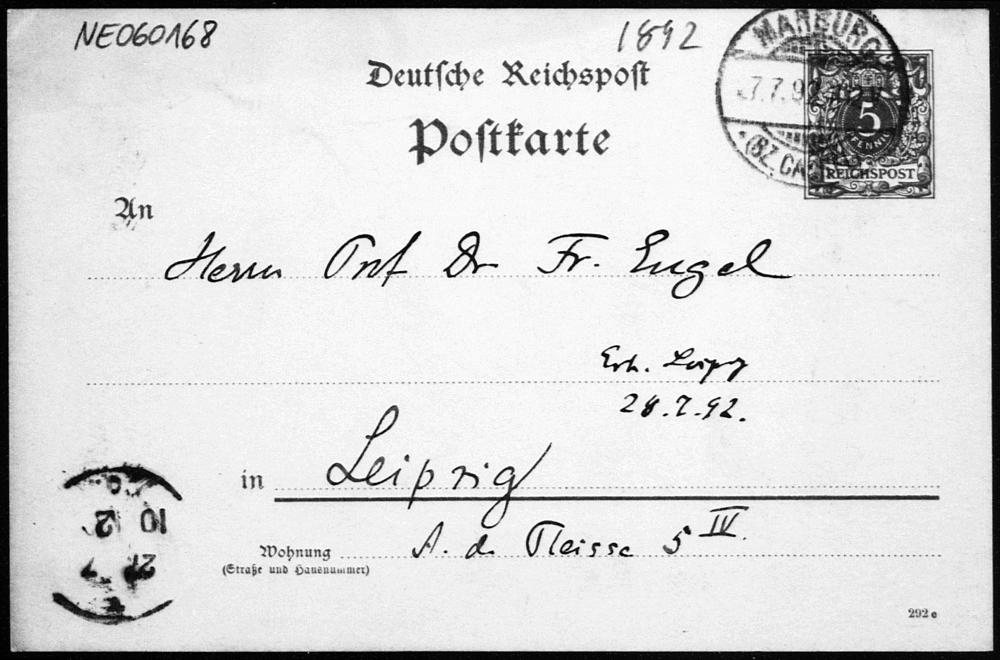 NE060168
1892
MARBURG
7.7.92
(BZ. CA
5
PFENNIG
REICHSPOST
Deutsche Reichspost
Postkarte
An
Herrn Prof Dr Fr. Engel
Erh. Leipzig
28.7.92.
in Leipzig
Wohnung A. d. Pleisse 5 IV.
(Straße und Hausnummer)
292 e